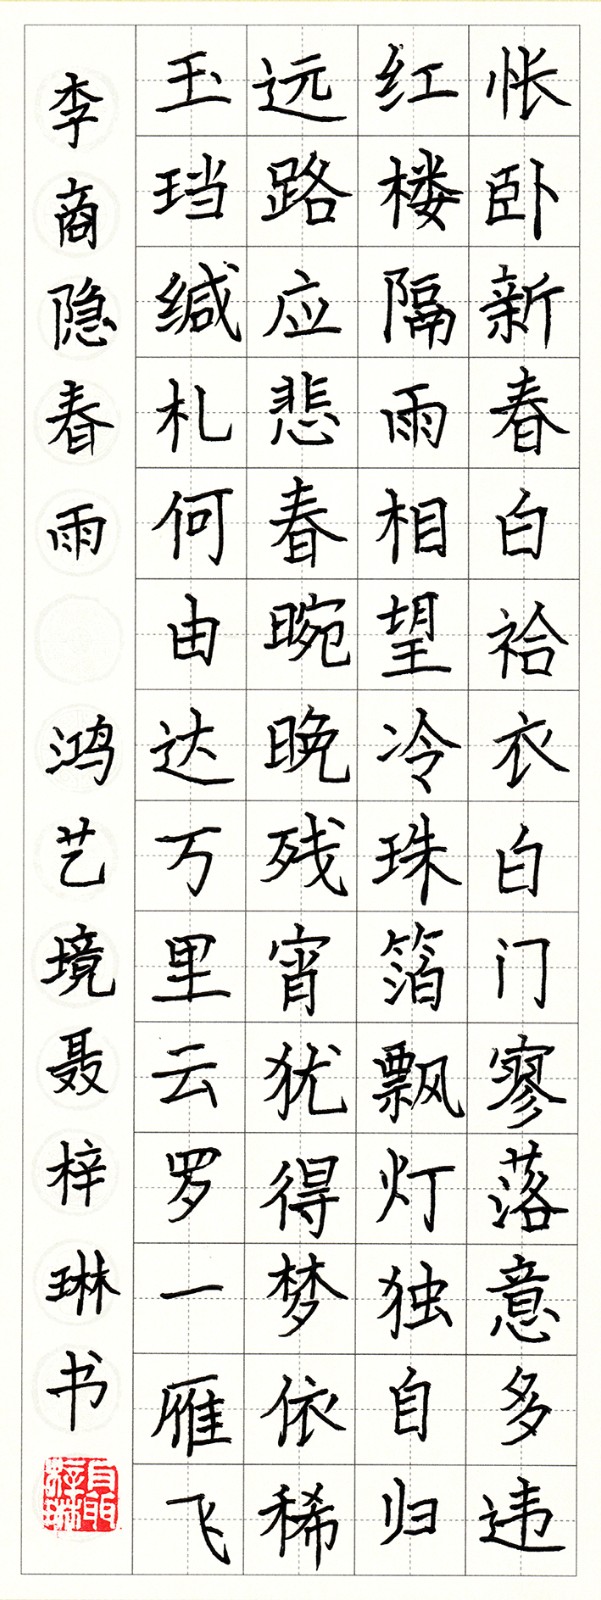 怅卧新春白袷衣白门寥落意多违
红楼隔雨相望冷珠箔飘灯独自归
远路应悲春晼晚残宵犹得梦依稀
玉珰缄札何由达万里云罗一雁飞
李商隐春雨 鸿艺境聂梓琳书